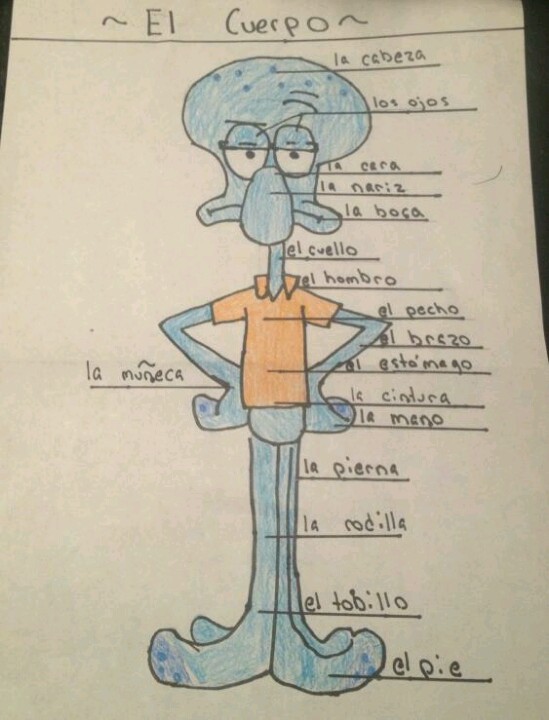 ~ El Cuerpo ~
la cabeza
los ojos
la cara
la nariz
la boca
el cuello
el hombro
el pecho
el brazo
el estómago
la muñeca
la cintura
la mano
la pierna
la rodilla
el tobillo
el pie